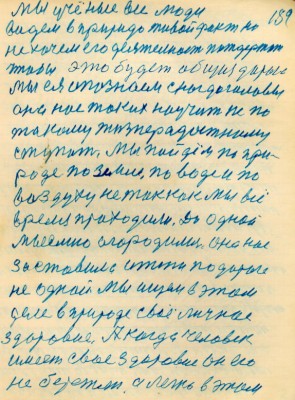 Мы учёные все люди 139
видем в природо живой факт но
не хочем его деятельност потдержат
чтобы это будет общих дарога
Мы ся опознаем с ног до головы
она нас таких научит не по
такому жизнерадостному
ступат, Мы пойдём по при-
роде по земли, по водеи по
воздуху не так как Мы всё
время проходили. До одной
Мы огородими, она нас
заставила итти по дороге
не одной Мы ищим в этом
деле в природе своё личное
здоровие, А когда человек
имеет свое здоровие он его
не бережот, а легко в этом